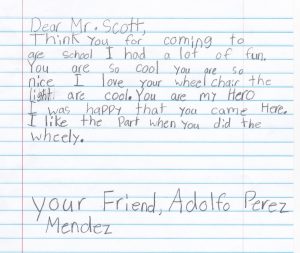 Dear Mr. Scott,
Think you for coming to
are school I had a lot of fun.
You are so cool you are so
nice I love your wheel chair the
light are cool. You are my Hero
I was happy that you came Here.
I like the Part when you did the
wheely.
your Friend, Adolfo Perez
Mendez